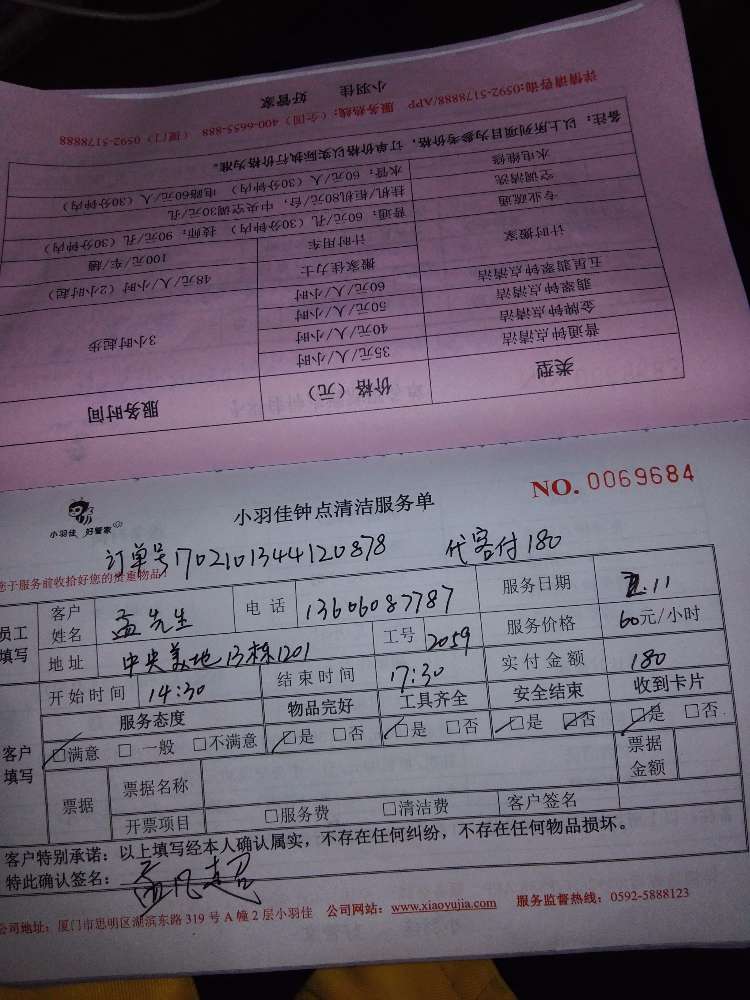 小羽佳 好管家
详情请咨询:0592-5178888/APP 服务热线:(全国)400-6655-888 (厦门)0592-5178888
备注:以上所列项目为参考价格,订单价格以实际执行价格为准。
水电维修 水管:60元/人(30分钟内) 电路60元/人(30分钟内)
空调清洗 挂机/柜机80元/台,中央空调30元/孔
专业疏通 普通:60元/孔(30分钟内) 技师:90元/孔(30分钟内)
计时搬家 计时用车 100元/车/趟
搬家佳力士 48元/人/小时(2小时起)
五星翡翠钟点清洁 60元/人/小时
翡翠钟点清洁 50元/人/小时
金牌钟点清洁 40元/人/小时
普通钟点清洁 35元/人/小时
3小时起步
类型 价格(元) 服务时间
小羽佳 好管家
小羽佳钟点清洁服务单
NO. 0069684
订单号1702101344120878 代客付180
您于服务前收拾好您的贵重物品!
员工填写 客户姓名 孟先生 电话 13606087787 服务日期 2.11
地址 中央美地13栋1201 工号 2059 服务价格 60元/小时
开始时间 14:30 结束时间 17:30 实付金额 180
客户填写 服务态度 物品完好 工具齐全 安全结束 收到卡片
☑满意 □一般 □不满意 ☑是 □否 ☑是 □否 ☑是 ☑否 ☑是 □否
票据 票据名称 票据金额
开票项目 □服务费 □清洁费 客户签名
客户特别承诺:以上填写经本人确认属实,不存在任何纠纷,不存在任何物品损坏。
特此确认签名:孟凡超
公司地址:厦门市思明区湖滨东路319号A幢2层小羽佳 公司网站:www.xiaoyujia.com 服务监督热线:0592-5888123